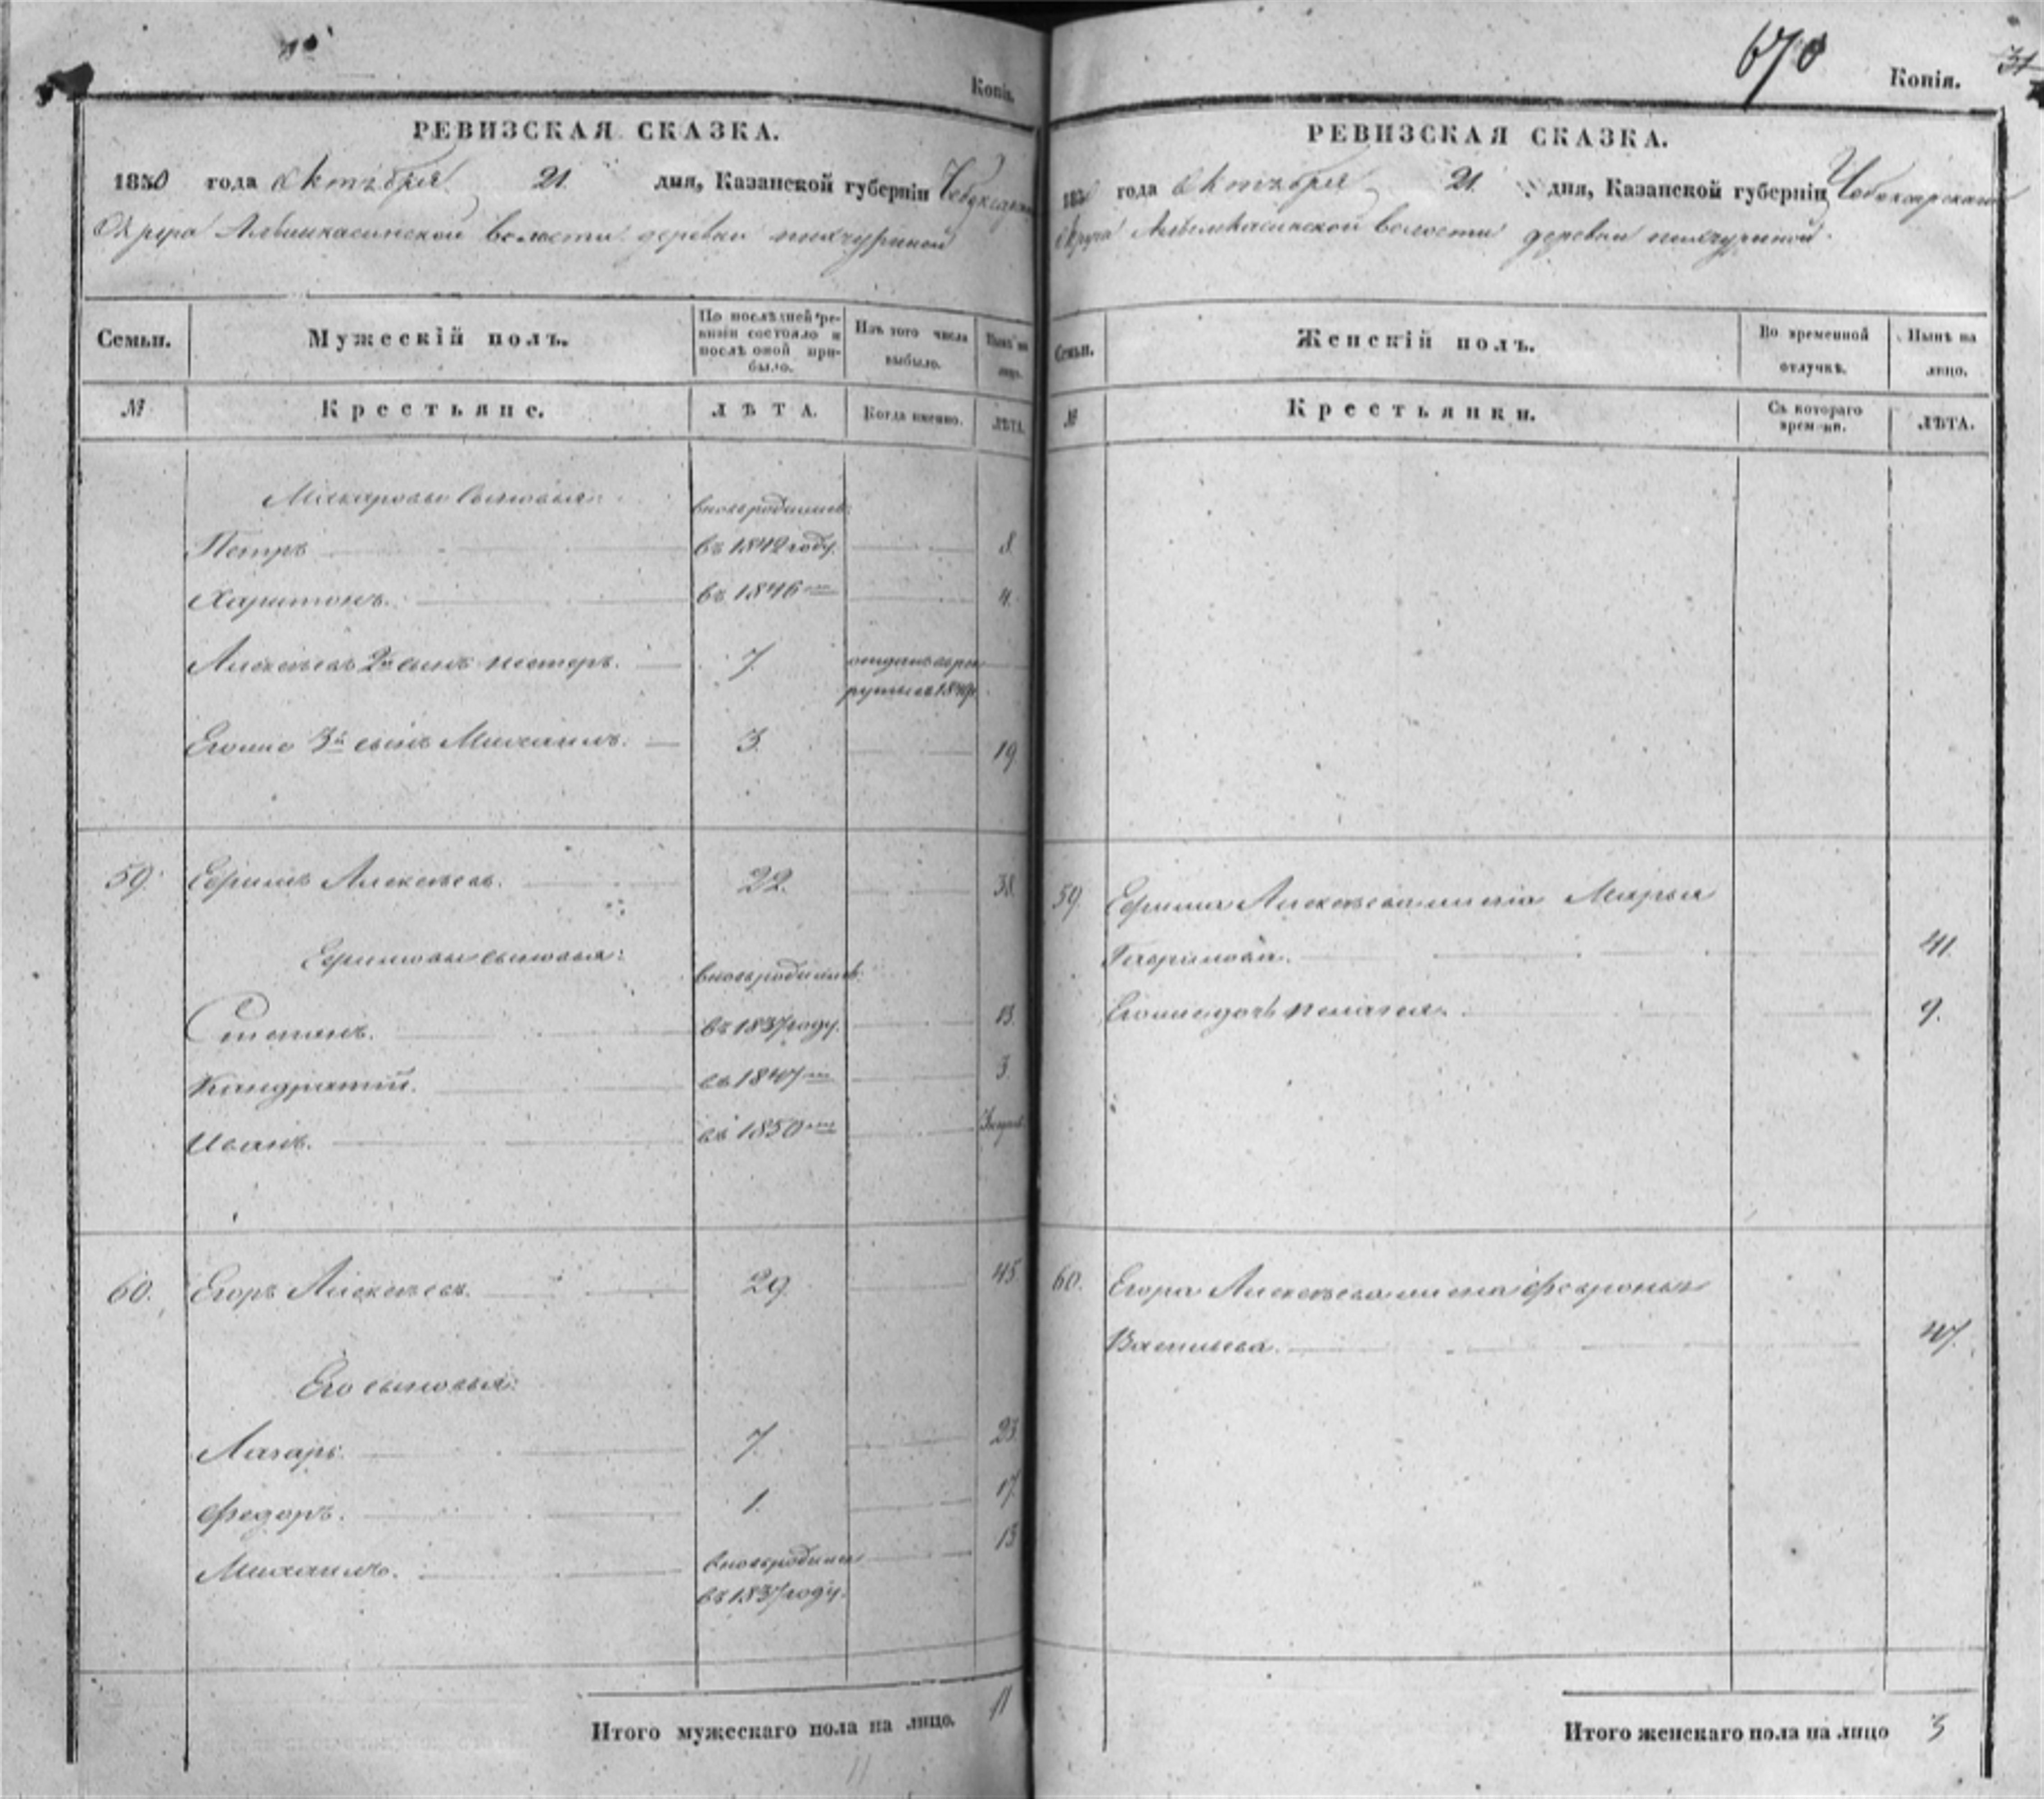 Копія.
РЕВИЗСКАЯ СКАЗКА.
1850 года Октября 21 дня, Казанской губерніи Чебоксарскаго
Округа Алымкасинской волости деревни
Семьи. Мужескій полъ. По послѣдней ревизіи состояло и послѣ оной прибыло. Изъ того числа выбыло. Нынѣ на лицо.
№ Крестьяне. ЛѢТА. Когда именно. ЛѢТА.
Макаровы сыновья:
вновь родились
Петръ въ 1842 году. 8.
Харитонъ. въ 1846 4.
Алексѣевъ 2й сынъ Нестеръ. 7. отданъ въ рек
руты въ
Егоже 3й сынъ Михаилъ. 3. 19.
59. Ефимъ Алексѣевъ. 22. 38.
Ефимовы сыновья:
вновь родились
Степанъ. въ 1837 году. 13.
Кандратій. въ 1847 3.
Иванъ. въ 1850
60. Егоръ Алексѣевъ. 29. 45.
Его сыновья:
Лазарь. 7. 23.
Федоръ. 1. 17.
Михаилъ. вновь родился 13
въ 1837 году.
Итого мужескаго пола на лицо. 11
11
670
Копія. 31
РЕВИЗСКАЯ СКАЗКА.
1850 года Октября 21 дня, Казанской губерніи Чебоксарскаго
Округа Алымкасинской волости деревни
Семьи. Женскій полъ. Во временной отлучкѣ. Нынѣ на лицо.
№ Крестьянки. Съ котораго времени. ЛѢТА.
59. Ефима Алексѣева жена Марья
Гаврилова. 41.
Егоже дочь Пелагея. 9.
60. Егора Алексѣева жена Февронья
Васильева. 47.
Итого женскаго пола на лицо 3